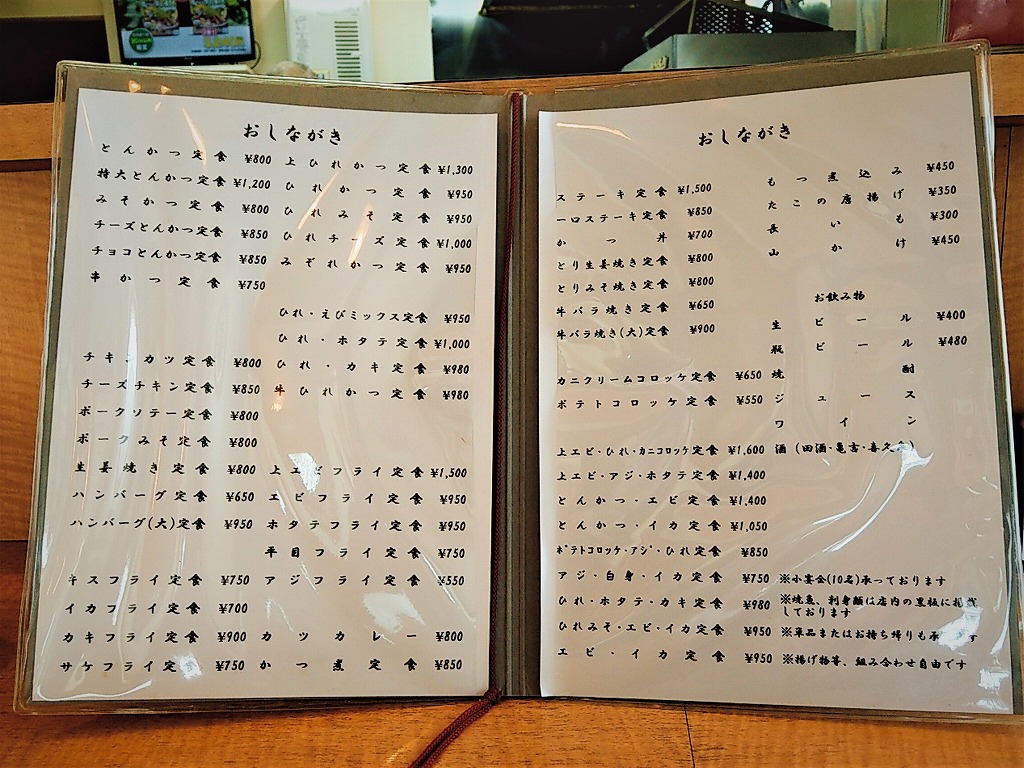 おしながき
とんかつ定食 ¥800
特大とんかつ定食 ¥1,200
みそかつ定食 ¥800
チーズとんかつ定食 ¥850
チョコとんかつ定食 ¥850
串かつ定食 ¥750
チキンカツ定食 ¥800
チーズチキン定食 ¥850
ポークソテー定食 ¥800
ポークみそ定食 ¥800
生姜焼き定食 ¥800
ハンバーグ定食 ¥650
ハンバーグ(大)定食 ¥950
キスフライ定食 ¥750
イカフライ定食 ¥700
カキフライ定食 ¥900
サケフライ定食 ¥750
上ひれかつ定食 ¥1,300
ひれかつ定食 ¥950
ひれみそ定食 ¥950
ひれチーズ定食 ¥1,000
みぞれかつ定食 ¥950
ひれ・えびミックス定食 ¥950
ひれ・ホタテ定食 ¥1,000
ひれ・カキ定食 ¥980
牛ひれかつ定食 ¥980
上エビフライ定食 ¥1,500
エビフライ定食 ¥950
ホタテフライ定食 ¥950
平目フライ定食 ¥750
アジフライ定食 ¥550
カツカレー ¥800
かつ煮定食 ¥850
おしながき
ステーキ定食 ¥1,500
一口ステーキ定食 ¥850
かつ丼 ¥700
とり生姜焼き定食 ¥800
とりみそ焼き定食 ¥800
牛バラ焼き定食 ¥650
牛バラ焼き(大)定食 ¥900
カニクリームコロッケ定食 ¥650
ポテトコロッケ定食 ¥550
上エビ・ひれ・カニコロッケ定食 ¥1,600
上エビ・アジ・ホタテ定食 ¥1,400
とんかつ・エビ定食 ¥1,400
とんかつ・イカ定食 ¥1,050
ポテトコロッケ・アジ・ひれ定食 ¥850
アジ・白身・イカ定食 ¥750
ひれ・ホタテ・カキ定食 ¥980
ひれみそ・エビ・イカ定食 ¥950
エビ・イカ定食 ¥950
もつ煮込み ¥450
たこの唐揚げ ¥350
長いも ¥300
山かけ ¥450
お飲み物
生ビール ¥400
瓶ビール ¥480
焼酎
ジュース
ワイン
酒(田酒・亀吉・喜久泉)
※小宴会(10名)承っております
※焼魚、刺身類は店内の黒板に掲載
しております
※単品またはお持ち帰りも承ります
※揚げ物等、組み合わせ自由です